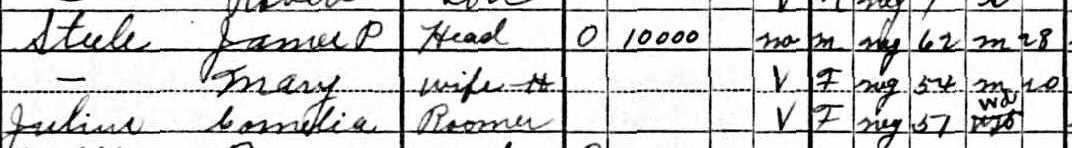 Steele James P Head O 10000 no m neg 62 m 28
— Mary wife H V F neg 54 m 20
Cornelia Roomer V F neg 57 wd